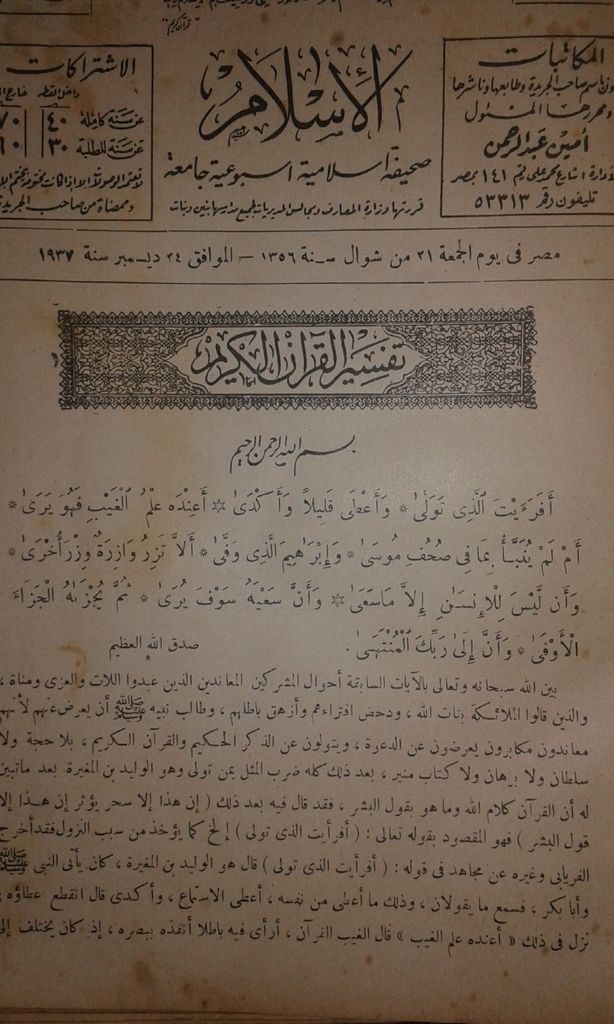 قرآن كريم
المكاتبات
صاحب الجريدة وطابعها وناشرها
ومحررها المسئول
أمين عبد الرحمن
شارع محمد على رقم ١٤١ بمصر
تليفون رقم ٥٣٣١٣
الإسلام
صحيفة إسلامية أسبوعية جامعة
قررتها وزارة المعارف ومجالس المديريات لجميع مدارسها بنين وبنات
الاشتراكات
داخل القطر خارج
عن سنة كاملة ٤٠ ٧٠
عن سنة للطلبة ٣٠ ٦٠
وممضاة من صاحب الجريدة
مصر فى يوم الجمعة ٢١ من شوال سنة ١٣٥٦ – الموافق ٢٤ ديسمبر سنة ١٩٣٧
تفسير القرآن الكريم
بسم الله الرحمن الرحيم
أَفَرَءَيْتَ ٱلَّذِى تَوَلَّىٰ * وَأَعْطَى قَلِيلاً وَأَكْدَىٰ * أَعِندَهُ عِلْمُ الْغَيْبِ فَهُوَ يَرَىٰ *
أَمْ لَمْ يُنَبَّأْ بِمَا فِى صُحُفِ مُوسَىٰ * وَإِبْرَاهِيمَ الَّذِى وَفَّىٰ * أَلاَّ تَزِرُ وَازِرَةٌ وِزْرَ أُخْرَىٰ *
وَأَن لَّيْسَ لِلْإِنسَـٰنِ إِلاَّ مَاسَعَىٰ * وَأَنَّ سَعْيَهُ سَوْفَ يُرَىٰ * ثُمَّ يُجْزَىٰهُ الْجَزَاءَ
الْأَوْفَىٰ * وَأَنَّ إِلَىٰ رَبِّكَ الْمُنْتَهَىٰ . صدق الله العظيم
بين الله سبحانه وتعالى بالآيات السابقة أحوال المشركين المعاندين الذين عبدوا اللات والعزى ومناة ،
والذين قالوا الملائكة بنات الله ، ودحض افتراءهم وأزهق باطلهم ، وطالب نبيه ﷺ أن يعرض عنهم لأنهم
معاندون مكابرون يعرضون عن الدعوة ، ويتولون عن الذكر الحكيم والقرآن الكريم ، بلا حجة ولا
سلطان ولا برهان ولا كتاب منير ، بعد ذلك كله ضرب المثل بمن تولى وهو الوليد بن المغيرة. بعد ماتبين
له أن القرآن كلام الله وما هو بقول البشر ، فقد قال فيه بعد ذلك ( إن هذا إلا سحر يؤثر إن هـذا إلا
قول البشر ) فهو المقصود بقوله تعالى : ( أفرأيت الذى تولى ) إلخ كما يؤخذ من سبب النزول فقد أخرج
الفريابى وغيره عن مجاهد فى قوله : ( أفرأيت الذى تولى ) قال هو الوليد بن المغيرة ، كان يأتى النبى ﷺ
وأبا بكر ، فسمع ما يقولان ، وذلك ما أعطى من نفسه ، أعطى الاستماع ، وأكدى قال انقطع عطاؤه
نزل فى ذلك « أعنده علم الغيب » قال الغيب القرآن ، أرأى فيه باطلا أنفذه ببصره ، إذ كان يختلف إلى